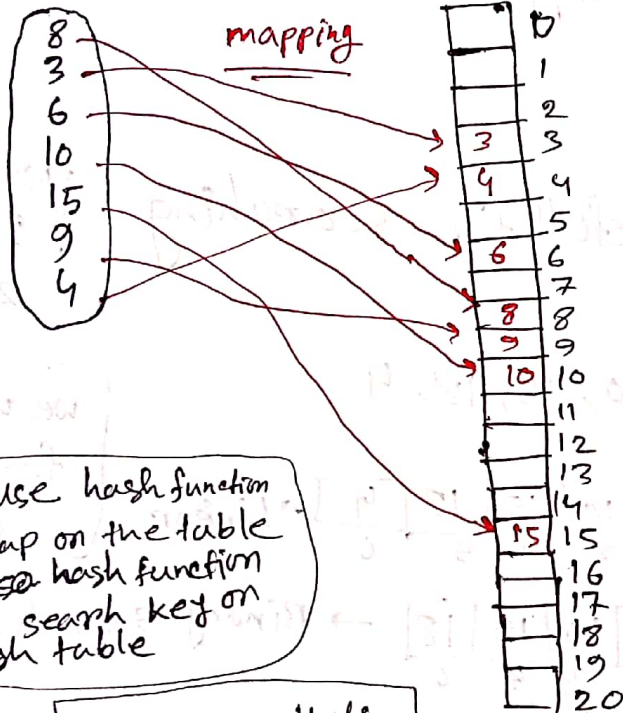 mapping
8
3
6
10
15
9
4
0
1
2
3 3
4 4
5
6 6
7
8 8
9 9
10 10
11
12
13
14
15 15
16
17
18
19
20
use hash function
on the table
hash function
search key on
table